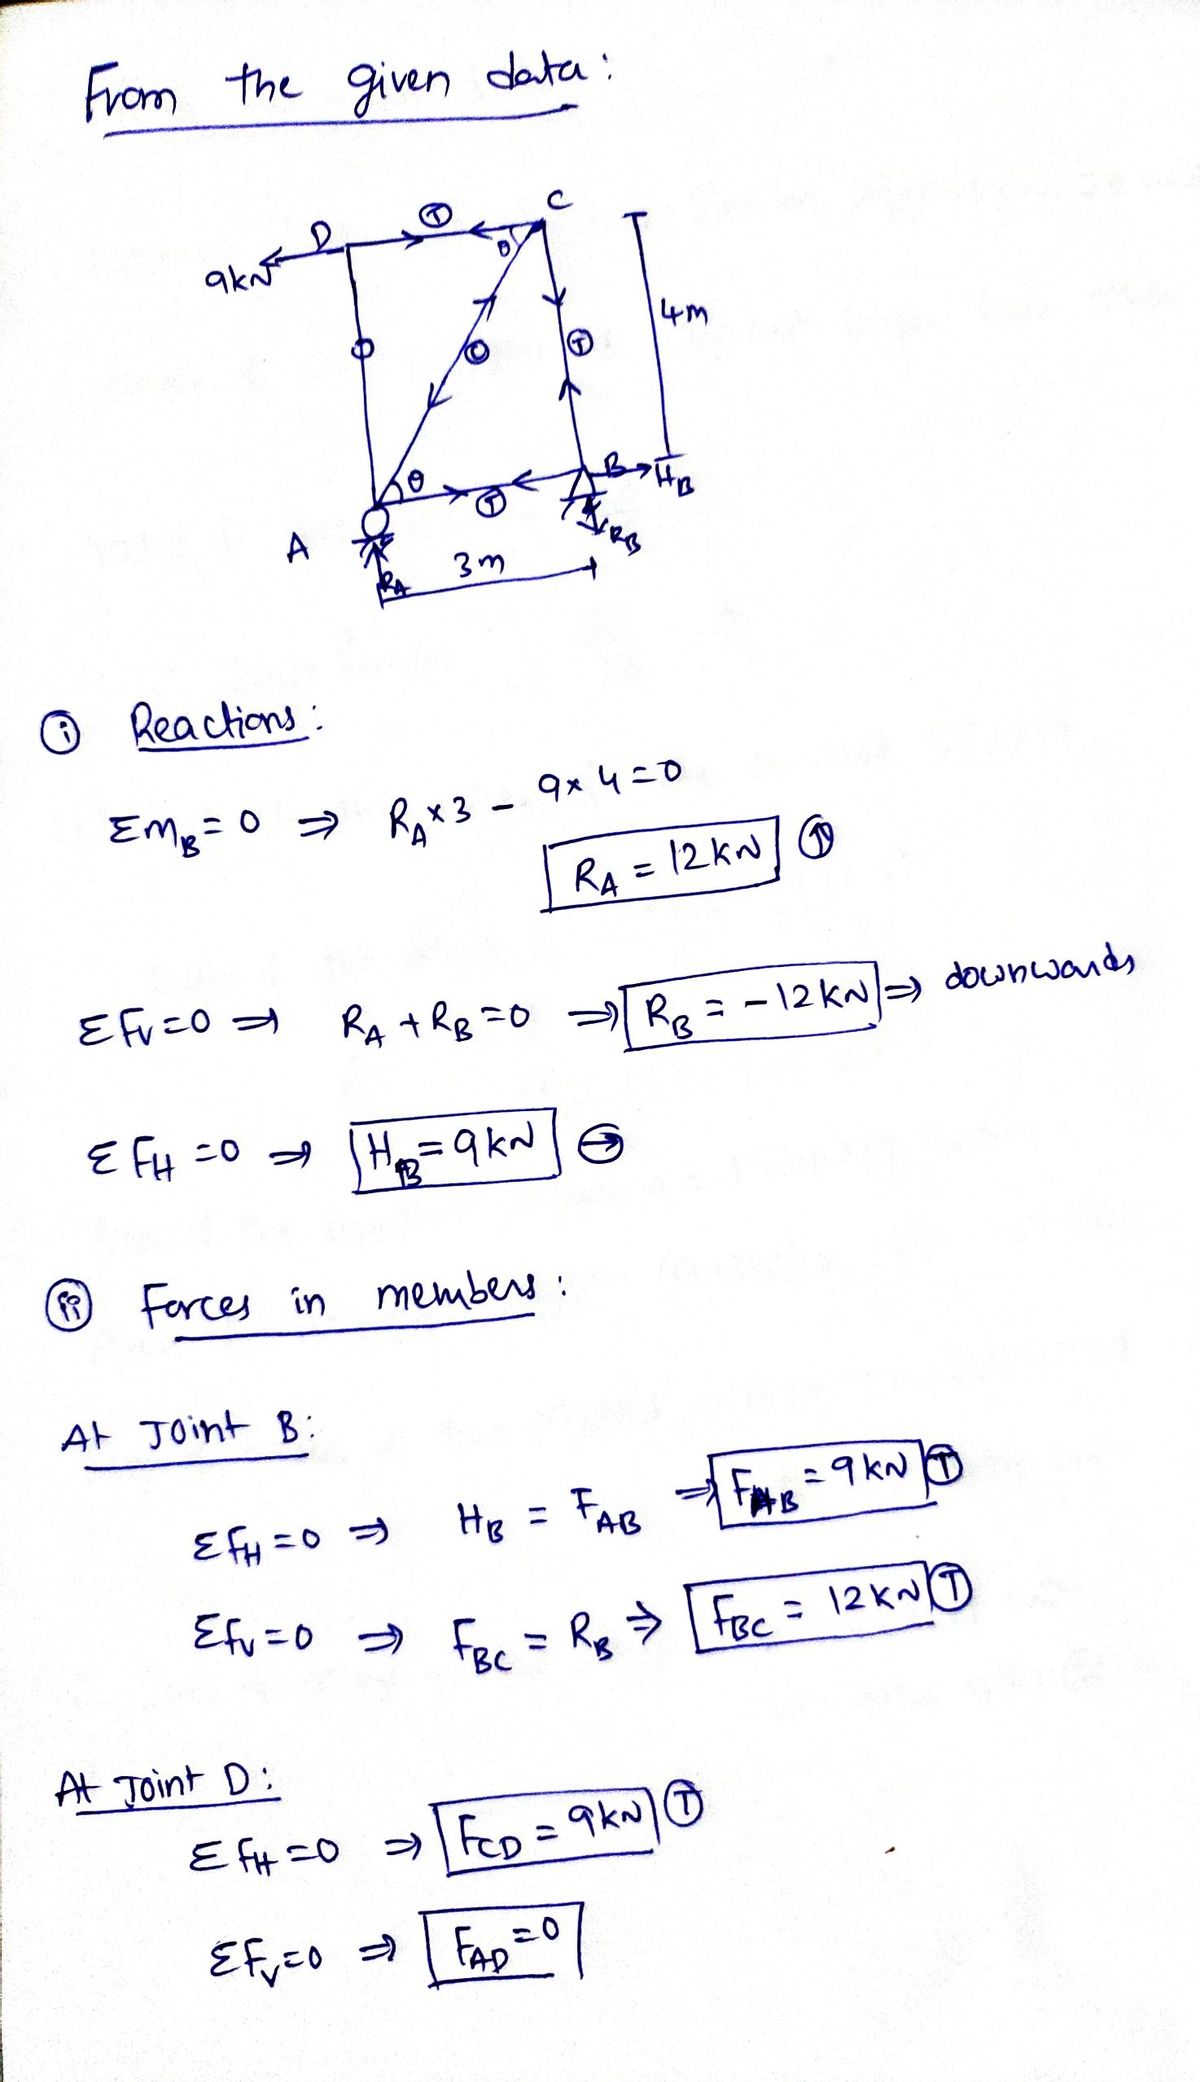 From the given data:
C
D T
9kN θ
4m
C T
θ T B H_B
A R_B
R_A 3m
i Reactions:
ΣM_B=0 ⇒ R_A×3 - 9×4=0
R_A = 12kN ↑
ΣF_V=0 ⇒ R_A+R_B=0 ⇒ R_B = -12kN ⇒ downwards
ΣF_H=0 ⇒ H_B=9kN →
ii Forces in members:
At Joint B:
ΣF_H=0 ⇒ H_B = F_AB ⇒ F_AB = 9kN T
ΣF_V=0 ⇒ F_BC = R_B ⇒ F_BC = 12kN T
At Joint D:
ΣF_H=0 ⇒ F_CD = 9kN T
ΣF_V=0 ⇒ F_AD=0